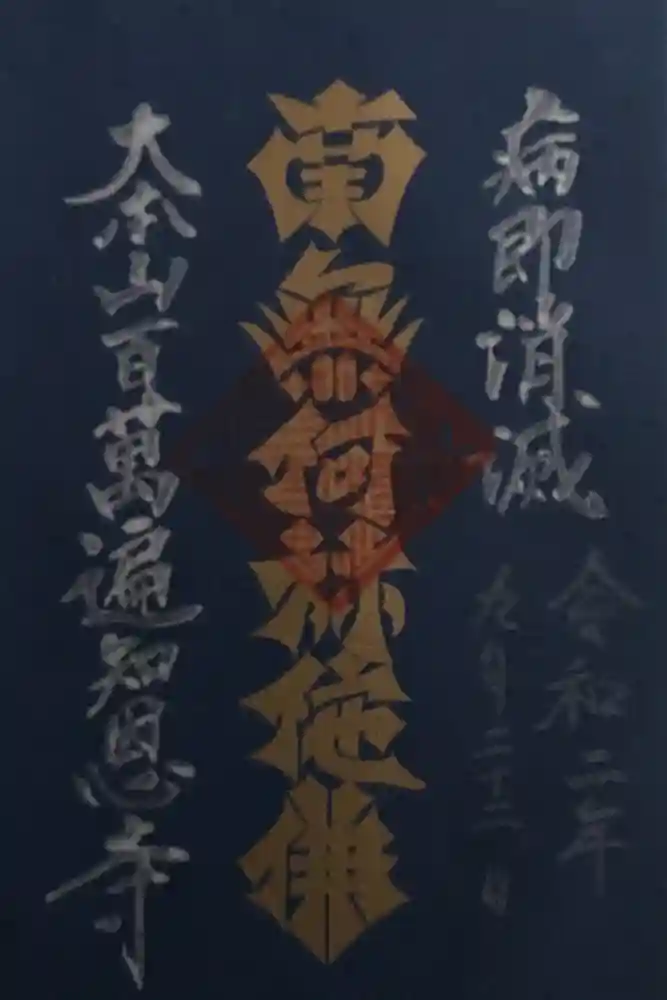 病即消滅
令和二年
九月二十二日
南無阿弥陀佛
大本山百萬遍知恩寺